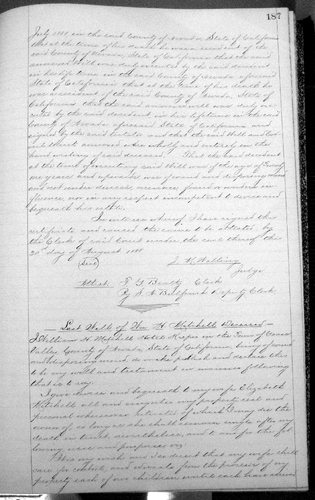 187
July 1888 in the said County of Nevada State of California
that at the time of his death he was a resident of the
said County of Nevada State of California that the said
annexed Will was duly executed by the said decedent
in his life time in the said County of Nevada aforesaid
State of California that at the time of his death he
was a resident of the said County of Nevada State of
California that the said annexed will was duly exe
cuted by the said decedent in his lifetime in the said
County of Nevada aforesaid State of California and
signed by the said testator and that the said Will and
hand writing of said decedent. That the said decedent
at the time of executing said Will was of the age of
years and upwards was of sound and disposing mind
and not under duress, menace, fraud or undue in
fluence, nor in any respect incompetent to devise and
bequeath his estate.
In witness whereof I have signed this
certificate and caused the same to be attested by
the Clerk of said Court under the seal thereof this
20th day of August 1888
(Seal) J. M. Walling
Judge
Attest. Clerk
By Deputy Clerk
Last Will of Wm H Mitchell Deceased
I William H Mitchell Hotel Keeper in the Town of Grass
Valley County of Nevada State of California being of sound
and disposing mind do make publish and declare this
to be my will and testament in manner following
that is to say.
I give devise and bequeath to my wife Elizabeth
Mitchell all and singular my property real and
personal whatsoever of which I may die the
owner of so long as she shall remain single after my
death in trust nevertheless, and to and for the fol
lowing uses and purposes viz:
It is my wish and desire that my wife shall
and educate from the proceeds of my
property each of our children until each have